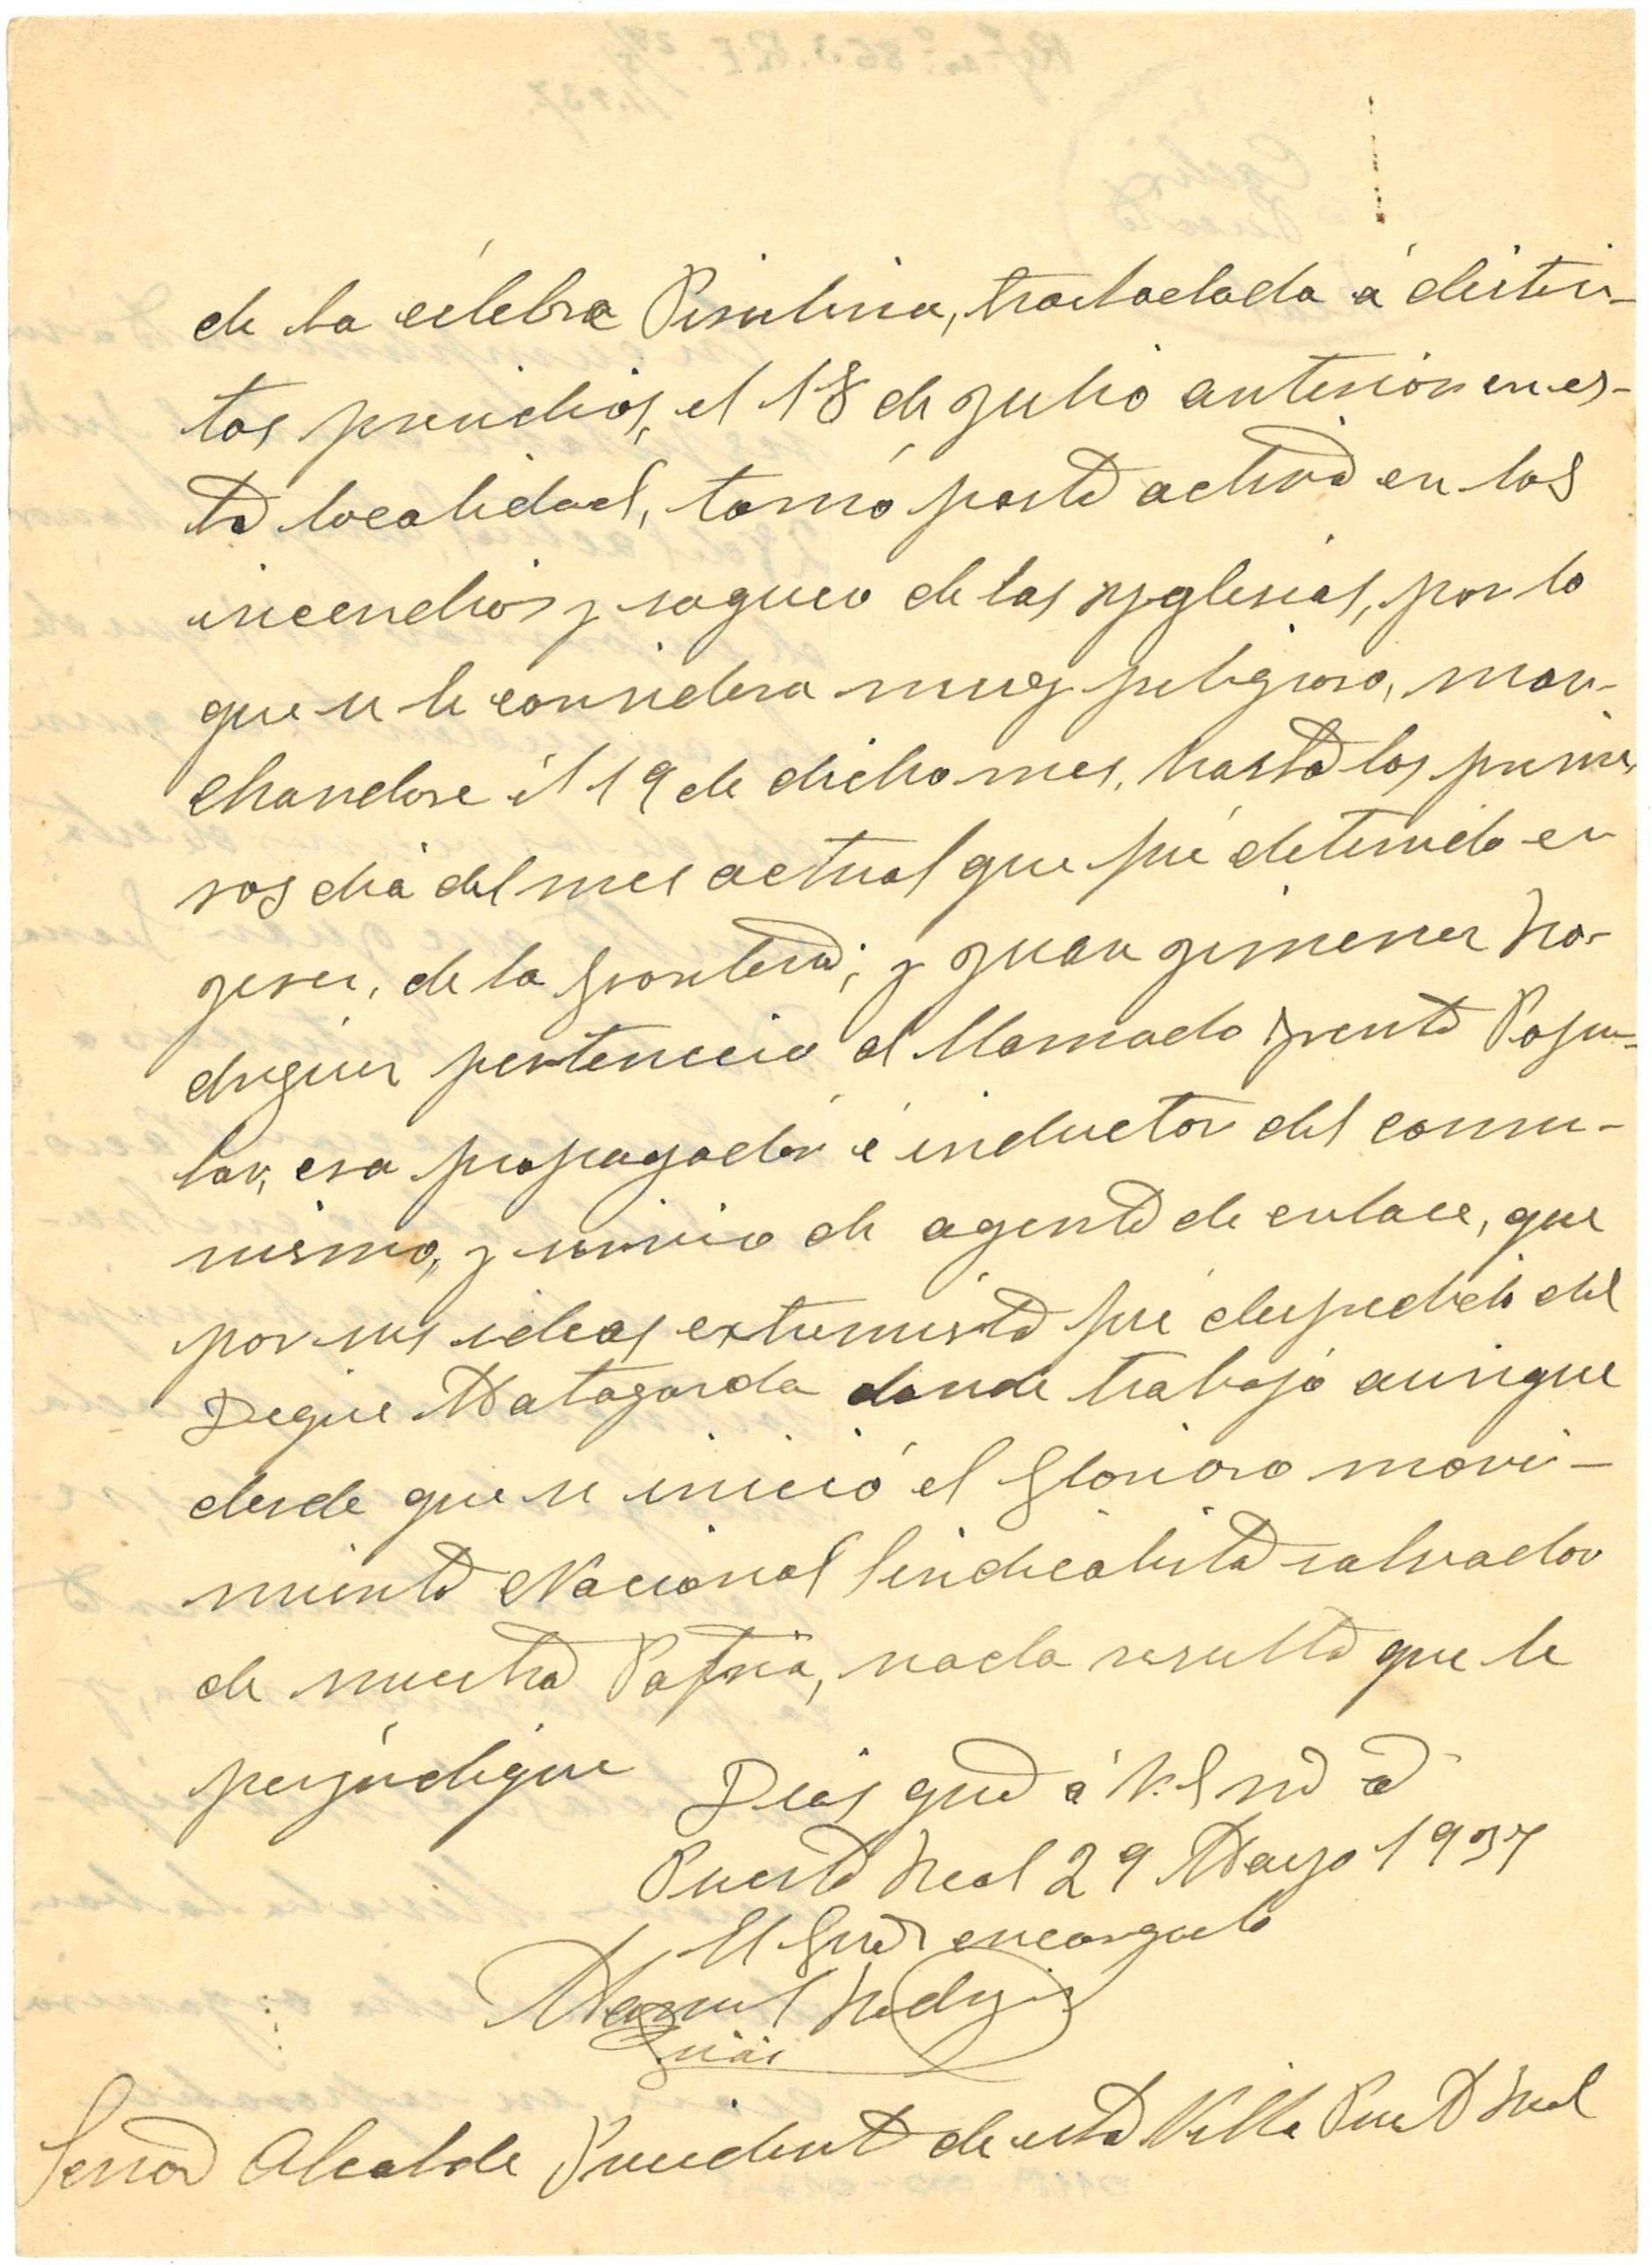 de la célebre Pirulina, trasladada á distin-
tos presidios, el 18 de Julio anterior en es-
ta localidad, tomó parte activa en los
incendios y saqueo de las yglesias, por lo
que se le considera muy peligroso, mar-
chandose el 19 de dicho mes, hasta los prime
ros dia del mes actual que fué detenido en
Jerez, de la Frontera; y Juan Jimenez Ro-
driguez pertenecio al llamado Frente Popu-
lar, era propagador é inductor del comu-
nismo, y sirvio de agente de enlace, que
por sus ideas extremista fué despedido del
Dique Matagorda donde trabajó aunque
desde que se inició el Glorioso movi-
miento Nacional Sindicalista salvador
de nuestra Patria, nada resulta que le
perjudique
Dios gue á V. S. ms as
Puerto Real 29 Mayo 1937
El Guardia encargado
Manuel Rodriguez
Señor Alcalde Presidente de esta Villa Puerto Real